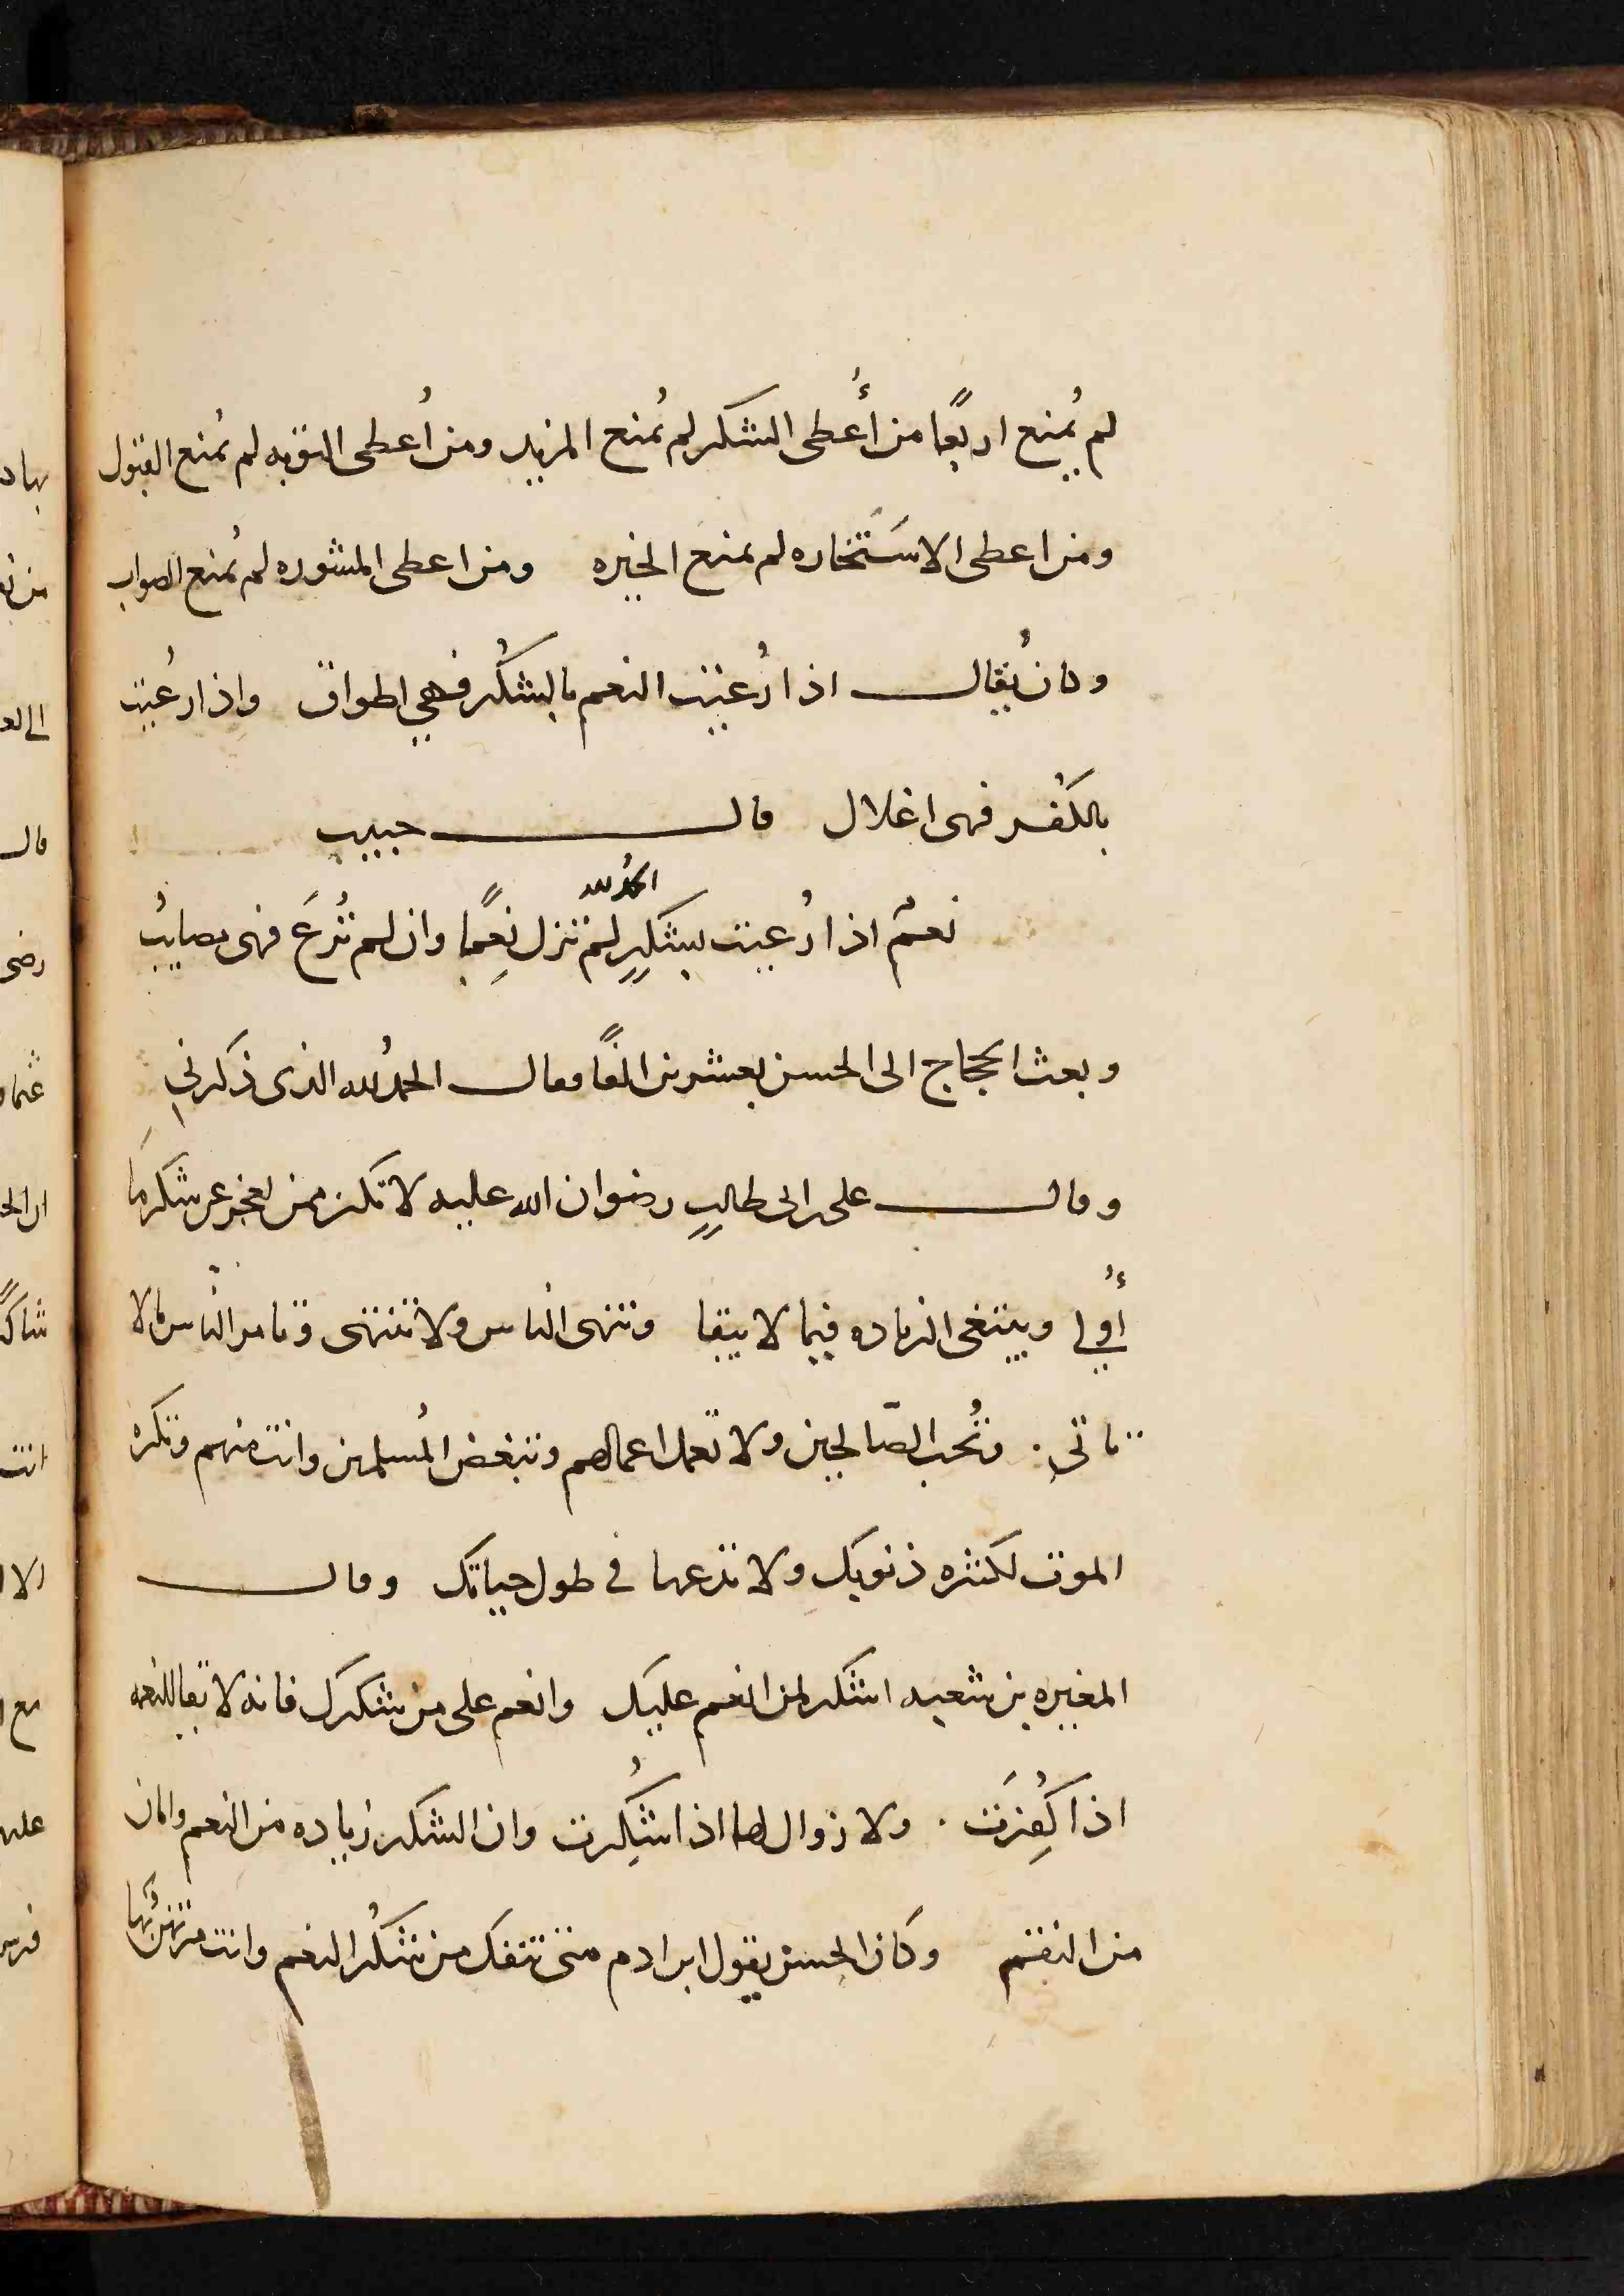 لم يُمنع اربعًا من أُعطى الشكر لم يُمنع المزيد ومن اُعطى التوبه لم يُمنع القبول
ومن اعطى الاستخاره لم يمنع الخيره ومن اعطى المشوره لم يُمنع الصواب
وكان يُقال اذا رُعيت النعم بالشكُر فهي اطواق واذا رُعيت
بالكُفر فهى اغلال قال حبيب
الحمدُ لله
نعمٌ اذا رُعيت بشكرٍ لم تزل نِعمًا وان لم تُرعَ فهى مصايبُ
وبعث الحجاج الى الحسن بعشرين الفًا فقال الحمدُ لله الذى ذكرنى
وقال على بن ابى طالبٍ رضوان الله عليه لا تكن ممن يعجز عن شكر ما
أُولى ويبتغى الزياده فيما لا يبقا وتنهى الناس ولا تنتهى وتامر الناس بما لا
تاتى. وتُحب الصّالحين ولا تعمل اعمالهم وتبغض المُسلمين وانت منهم وتكره
الموت لكثره ذنوبك ولا تدعها في طول حياتك وقال
المغيره بن شعبه اشكر لمن انعم عليك وانعم على من شكرك فانه لا بقا للنعمه
اذا كُفِرَت. ولا زوال لها اذا شُكِرت وان الشكر زياده من النعم وامان
من النقم وكان الحسن يقول ابن ادم متى تنفك من شكُر النعم وانت مرتهنٌ بها